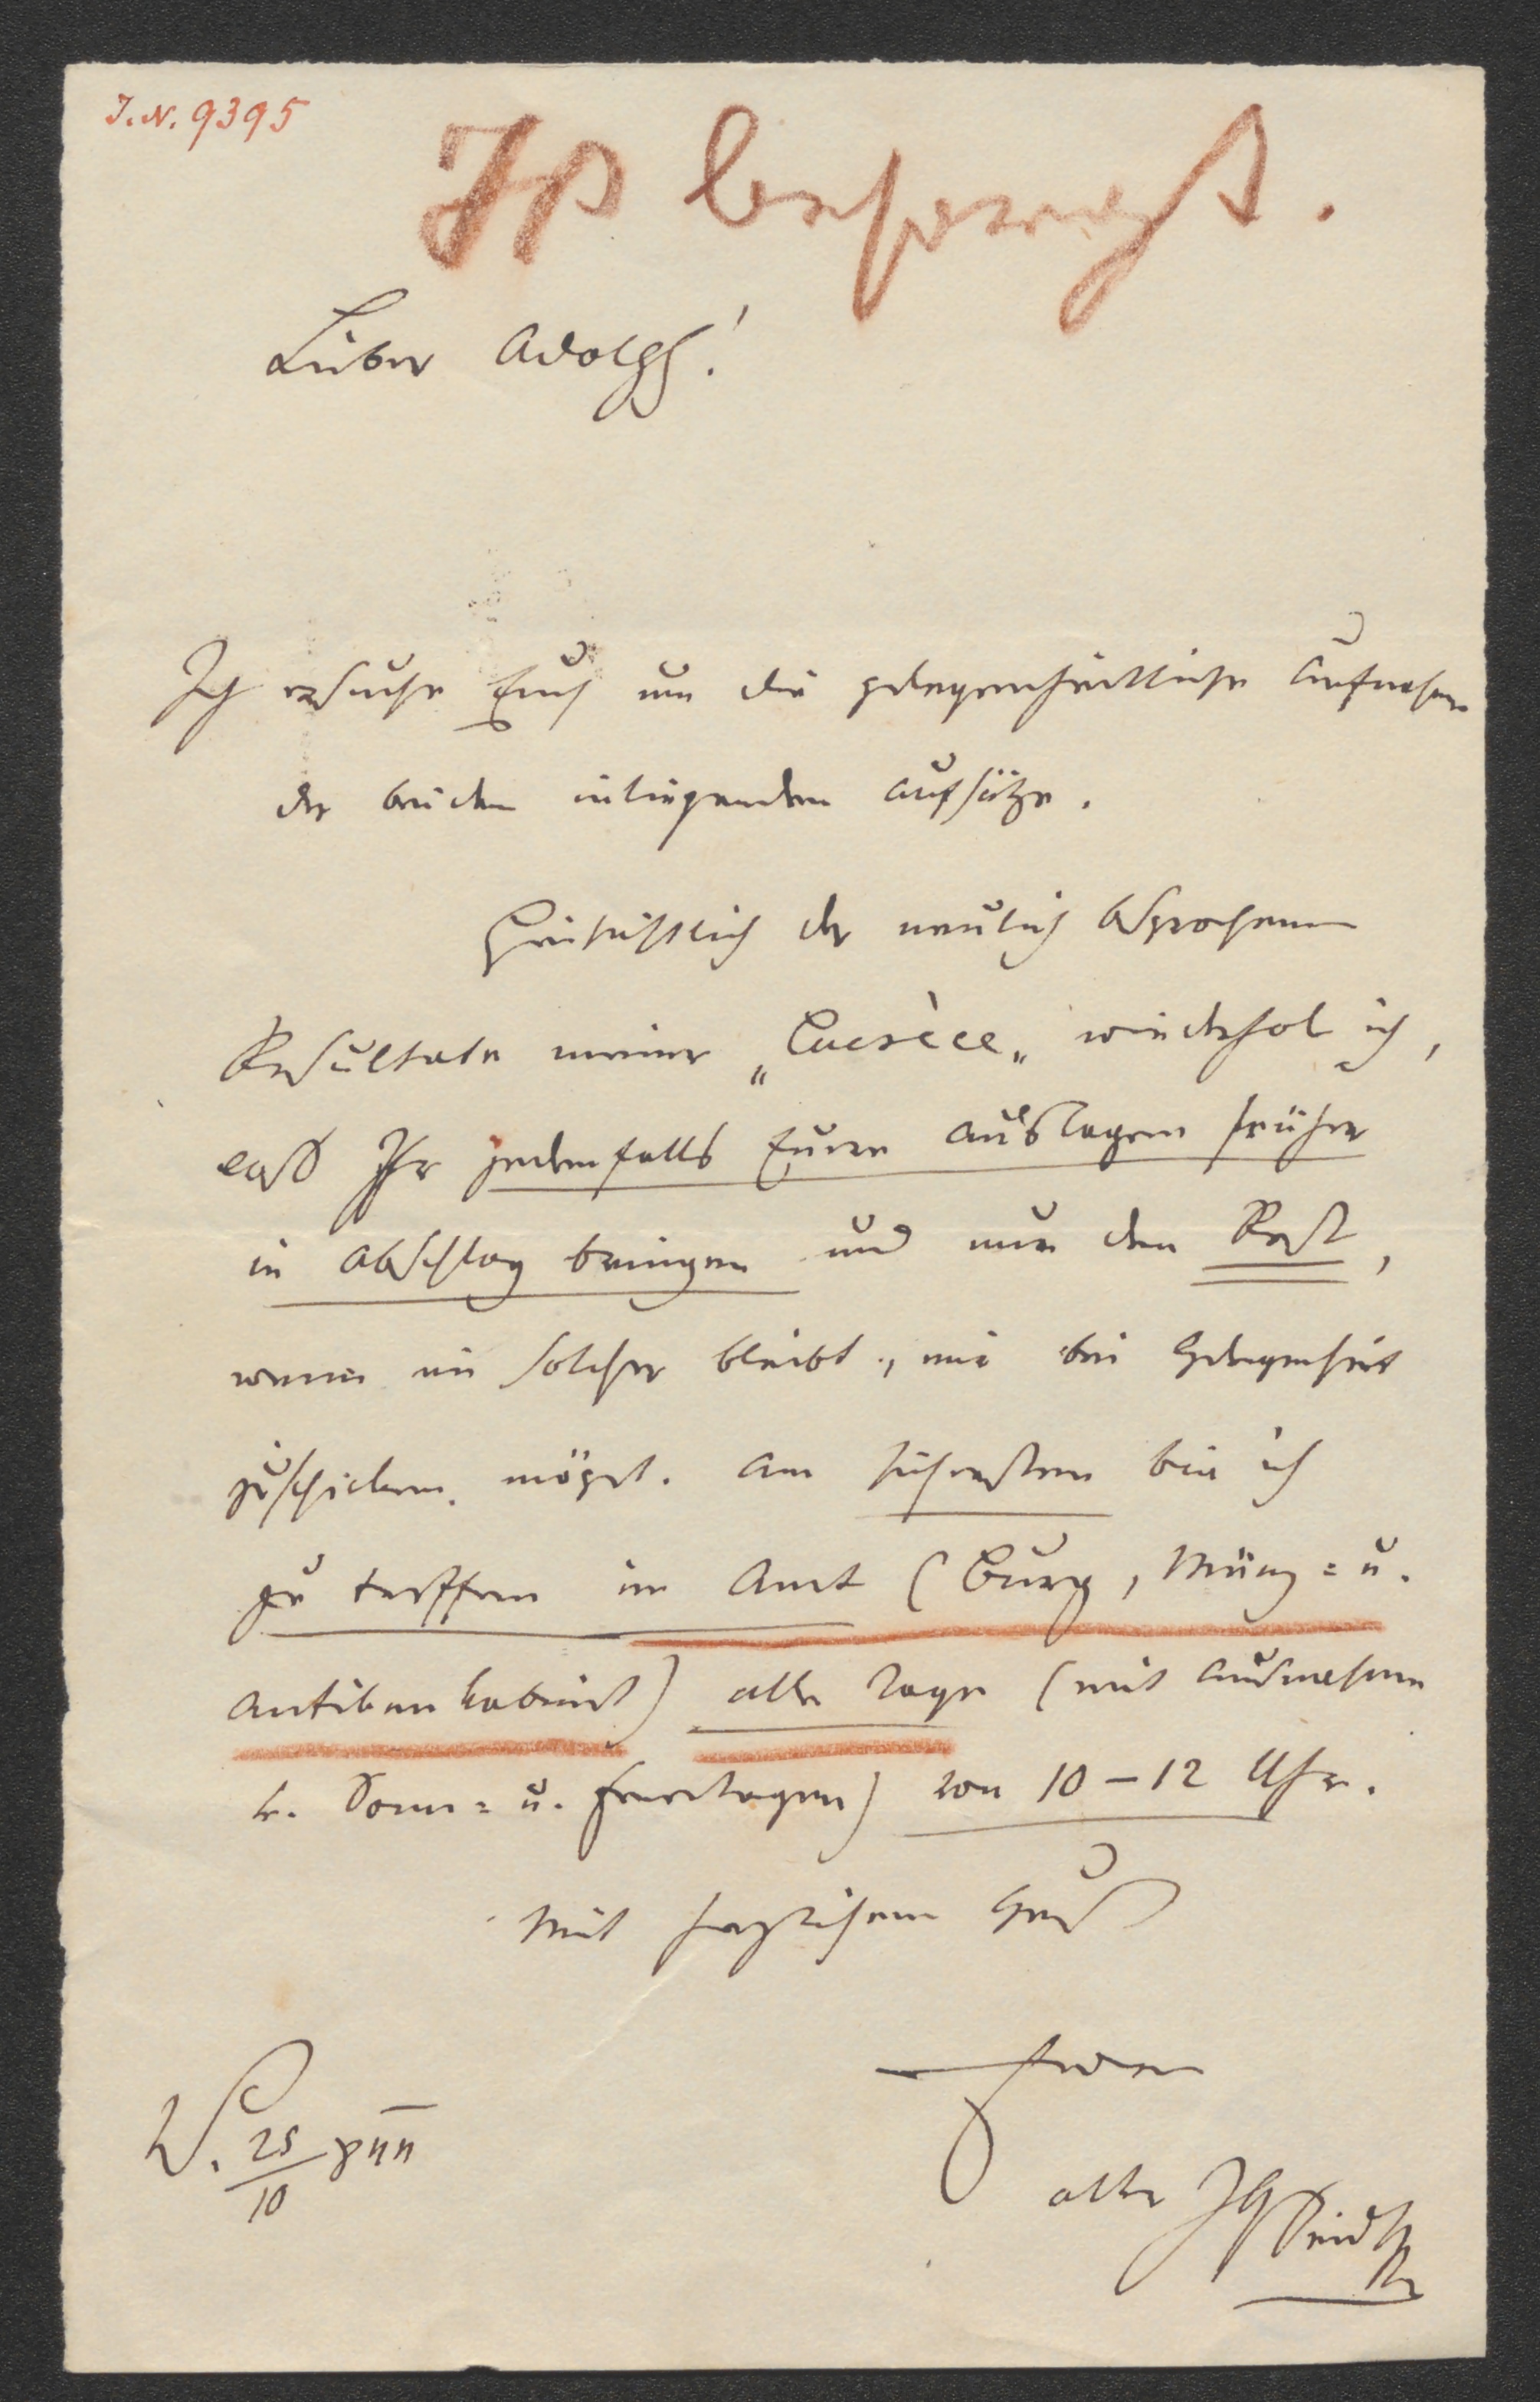 I.N. 9395
Ist besorgt.
Lieber Adolph!
Ich ersuche Euch um die gelegenheitliche Aufnahme
der beiden inliegenden Aufsätze.
Hinsichtlich der neulich besprochenen
Resultate meiner „Lucrèce„ wiederhol ich,
daß Ihr jedenfalls Eure Auslagen früher
in Abschlag bringen und nur den Rest,
wenn ein solcher bleibt, mir bei Gelegenheit
zuschicken möget. Am sichersten bin ich
zu treffen im Amt (Burg, Münz= u.
Antikenkabinet) alle Tage (mit Ausnahme
d. Sonn= u. Feiertagen) von 10–12 Uhr.
Mit herzlichem Gruß
Euer
W. 25/10 844
alter JGSeidl